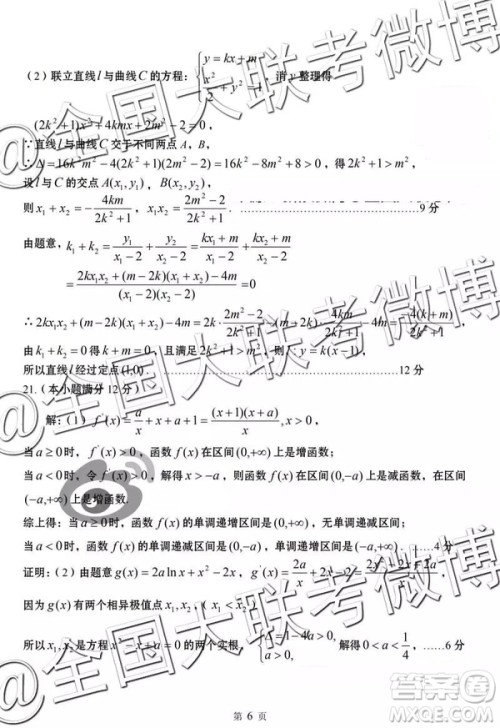 （2）联立直线l与曲线C的方程：{y=kx+m, x²/2+y²=1，消y整理得
(2k²+1)x²+4kmx+2m²-2=0，
∵直线l与曲线C交于不同两点A，B，
∴Δ=16k²m²-4(2k²+1)(2m²-2)=16k²-8m²+8>0，得2k²+1>m²，
设l与C的交点A(x₁,y₁)，B(x₂,y₂)，
则x₁+x₂=-4km/(2k²+1)，x₁x₂=(2m²-2)/(2k²+1)．……9分
由题意，k₁+k₂=y₁/(x₁-2)+y₂/(x₂-2)=(kx₁+m)/(x₁-2)+(kx₂+m)/(x₂-2)
=(2kx₁x₂+(m-2k)(x₁+x₂)-4m)/((x₁-2)(x₂-2))=0
∴2kx₁x₂+(m-2k)(x₁+x₂)-4m=2k·(2m²-2)/(2k²+1)
由k₁+k₂=0得k+m=0，且满足2k²+1>m²，则y=k(x-1)，
所以直线l经过定点(1,0)．……12分
21.（本小题满分12分）
解：（1）f'(x)=a/x+x+a+1=(x+1)(x+a)/x，
当a≥0时，f'(x)>0，函数f(x)在区间(0,+∞)上是增函数；
当a<0时，令f'(x)>0，解得x>-a，则函数f(x)在区间(0,-a)上是减函数，在区间
(-a,+∞)上是增函数.
综上得：当a≥0时，函数f(x)的单调递增区间是(0,+∞)，无单调递减区间；
当a<0时，函数f(x)的单调递减区间是(0,-a)，单调递增区间是(-a,+∞)．……4分
证明：（2）由题意g(x)=2alnx+x²-2x，g'(x)=2a/x+2x-2=(2x²-2x+2a)/x，
因为g(x)有两个相异极值点x₁,x₂，(x₁<x₂)
所以x₁,x₂是方程x²-x+a=0的两个实根，{Δ=1-4a>0, a>0, 解得0<a<1/4，……6分
第 6 页
@全国大联考微博
@全国大联考微博
@全国大联考微博
答案圈
MXQE.COM